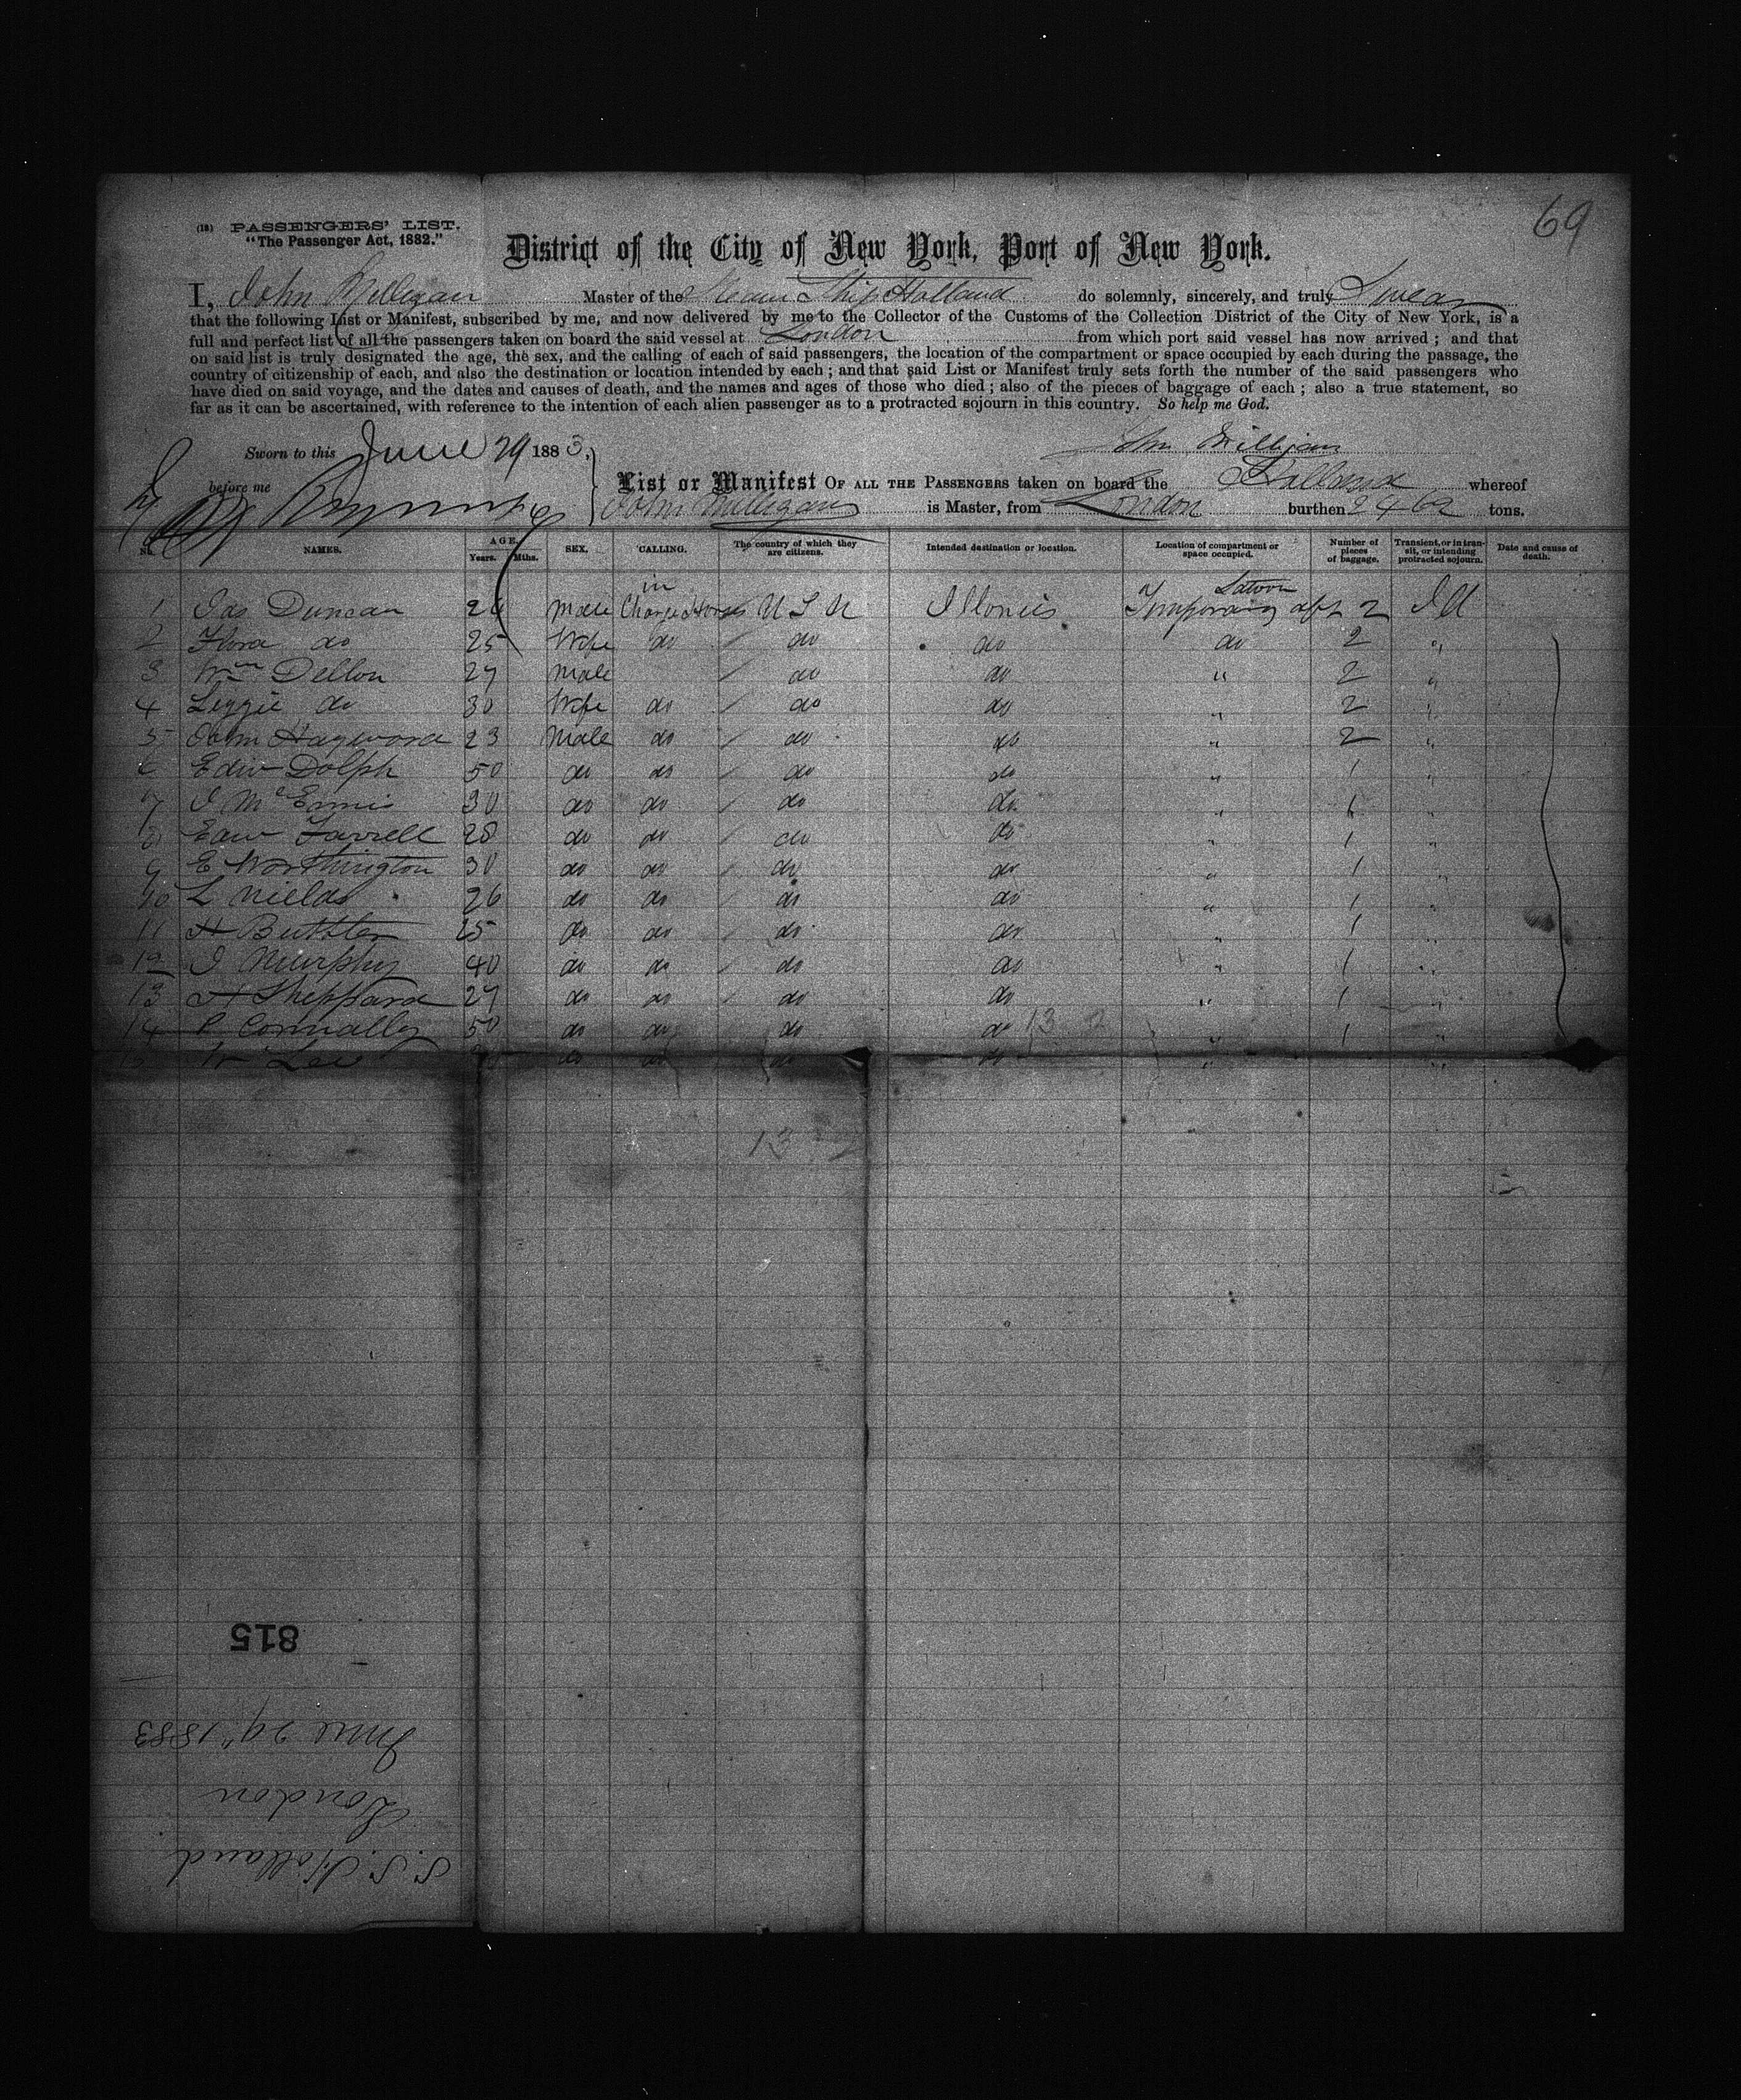 69
(18) PASSENGERS' LIST.
"The Passenger Act, 1882."
District of the City of New York, Port of New York.
I, John Milligan Master of the Steam Ship Holland do solemnly, sincerely, and truly Swear
that the following List or Manifest, subscribed by me, and now delivered by me to the Collector of the Customs of the Collection District of the City of New York, is a
full and perfect list of all the passengers taken on board the said vessel at London from which port said vessel has now arrived; and that
on said list is truly designated the age, the sex, and the calling of each of said passengers, the location of the compartment or space occupied by each during the passage, the
country of citizenship of each, and also the destination or location intended by each; and that said List or Manifest truly sets forth the number of the said passengers who
have died on said voyage, and the dates and causes of death, and the names and ages of those who died; also of the pieces of baggage of each; also a true statement, so
far as it can be ascertained, with reference to the intention of each alien passenger as to a protracted sojourn in this country. So help me God.
Sworn to this June 29 1883, John Milligan
before me
List or Manifest OF ALL THE PASSENGERS taken on board the Holland whereof
John Milligan is Master, from London burthen 2462 tons.
No. NAMES. AGE. Years. Mths. SEX. CALLING. The country of which they are citizens. Intended destination or location. Location of compartment or space occupied. Number of pieces of baggage. Transient, or in transit, or intending protracted sojourn. Date and cause of death.
1 Jas Duncan 26 Male in Charge Horses U S A Illonois Saloon Temporary aft 2
2 Flora do 25 Wife do do do do 2 "
3 Wm Dellon 27 Male do do " 2 "
4 Lizzie do 30 Wife do do do " 2 "
5 John Hayword 23 Male do do do " 2 "
6 Edw Dolph 50 do do do do " 1 "
7 J McEnnis 30 do do do do " 1 "
8 Edw Farrell 28 do do do do " 1 "
9 E Worthington 30 do do do do " 1 "
10 L Nields 26 do do do do " 1 "
11 H Buttler 25 do do do do " 1 "
12 J Murphy 40 do do do do " 1 "
13 H Sheppard 27 do do do do " 1 "
14 P Connally 50 do do do do 13 2 " 1 "
15 W Lee do do do do " "
13 2
815
June 29" 1883
London
S.S. Holland